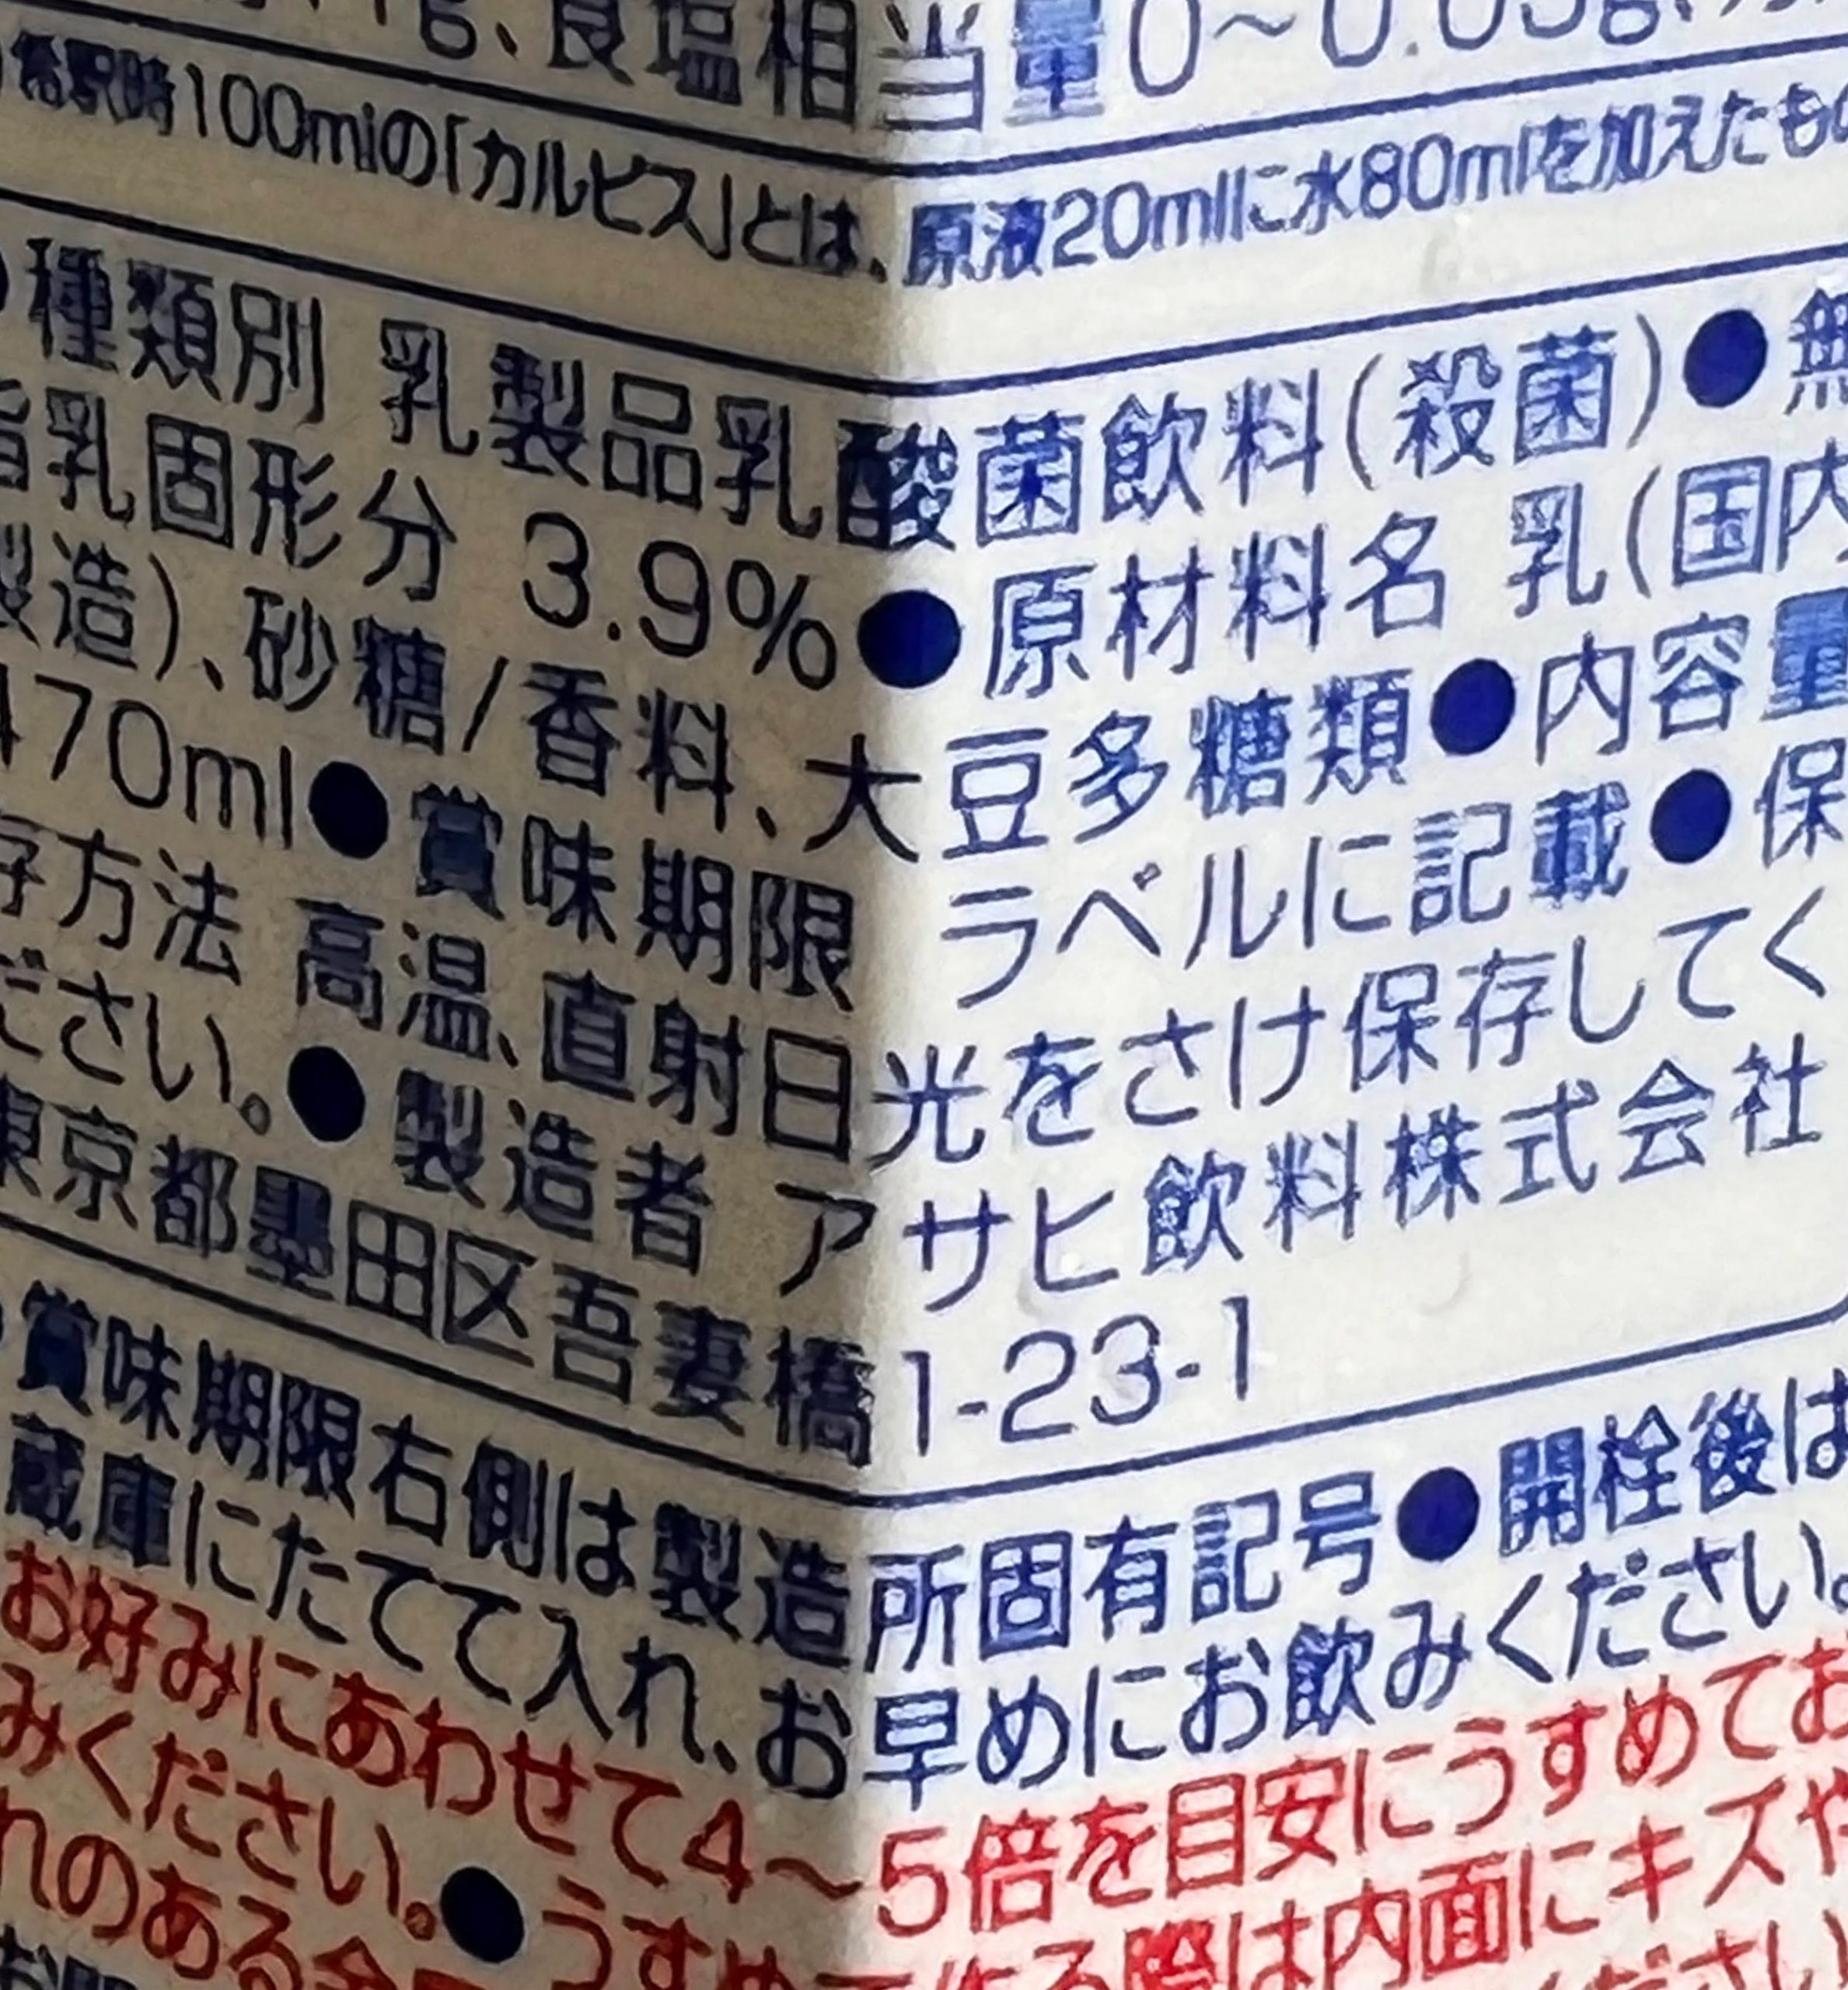 g、食塩相当量0～0.05g、
希釈時100mlの「カルピス」とは、原液20mlに水80mlを加えたもの
●種類別 乳製品乳酸菌飲料(殺菌)●無
脂乳固形分 3.9%●原材料名 乳(国内
製造)、砂糖/香料、大豆多糖類●内容量
470ml●賞味期限 ラベルに記載●保
存方法 高温、直射日光をさけ保存してく
ださい。●製造者 アサヒ飲料株式会社
東京都墨田区吾妻橋1-23-1
●賞味期限右側は製造所固有記号●開栓後は
蔵庫にたてて入れ、お早めにお飲みください。
お好みにあわせて4～5倍を目安にうすめてお
みください。●うすめて作る際は内面にキズや
れのある金